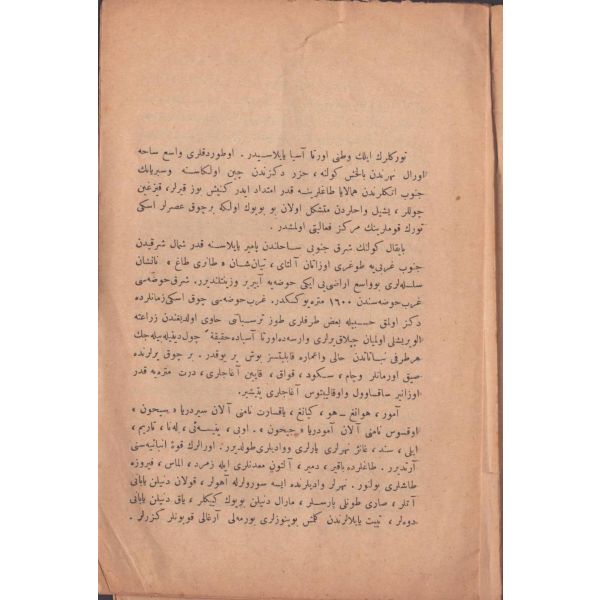 تورکلرك ایلك وطنی اورتا آسیا یایلاسیدر . اوطوردقلری واسع ساحه
اورال نهرندن بالخش کولنه ، حزر دکزندن چین اولکاسنه وسبریانك
جنوب اتکلرندن همالایا طاغلرینه قدر امتداد ایدر کنیش بوز قیرلر ، قیزغین
چوللر ، یشیل واحلردن متشکل اولان بو بویوك اولکه برچوق عصرلر اسکی
تورك قوملرینك مرکز فعالیتی اولمشدر .
بایقال کولنك شرق جنوبی ساحلندن پامیر یایلاسنه قدر شمال شرقیدن
جنوب غربی‌یه طوغری اوزانان آلتای ، تیان‌شان « طاکری طاغ » نانشان
سلسله‌لری بوواسع اراضی‌یی ایکی حوضه‌یه آییریر وزینتلندیرر. شرقی حوضه‌سی
غرب حوضه‌سندن ۱۶۰۰ متره یوکسکدر. غرب حوضه‌سی چوق اسکی زمانلرده
دکز اولمق حسبیله بعض طرفلری طوز ترسباتنی حاوی اولدیغندن زراعته
الویریشلی اولمیان چیلاق یرلری وارسه‌ده اورتا آسیاده حقیقةً چول دینیله‌بیله‌جك
هرطرفی نباتاتدن خالی واعماره قابلیتسز بوش یر یوقدر. بر چوق یرلرنده
صیق اورمانلر وجام ، سکود ، قواق ، قایین آغاجلری ، درت متره‌یه قدر
اوزانیر ساقساوول واوقالیپتوس آغاجلری یتیشیر.
آمور، هوانغ ـ هو ، کیانغ، یاقسارت نامنی آلان سیردریا « سیحون ،
اوقسوس نامنی آلان آمودریا « جیحون » . اوبی ، ینیسه‌ئی ، له‌نا ، تاریم ،
ایلی ، سند ، غانژ نهرلری یارلری ووادیلری طولدیرر. اورالرك قوهٔ انباتیه‌سنی
آرتدیرر. طاغلرده باقیر ، دمیر ، آلتون معدنلری ایله زمرد ، الماس ، فیروزه
طاشلری بولنور. نهرلر وادیلرنده ایسه سورولرله آهولر، قولان دنیلن یابانی
آتلر ، صاری طونلی بارسلر ، مارال دنیلن بویوك کییکلر ، یاق دنیلن یابانی
دوه‌لر ، تیبت یایلالرندن کلمش بوینوزلری بورمه‌لی آرغالی قویونلر کزرلر .